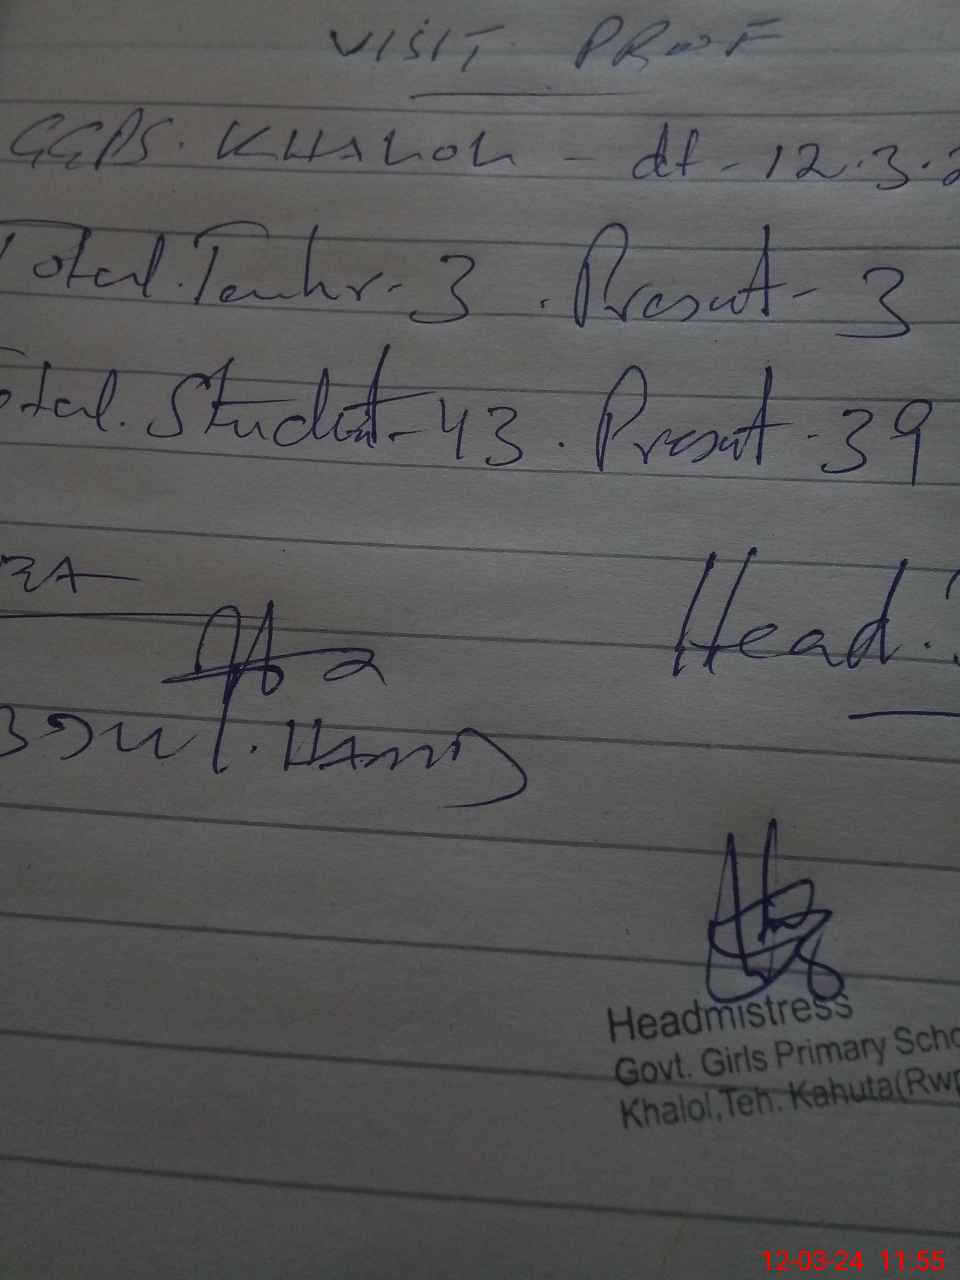 VISIT PROOF
GGPS. KHALOL - dt - 12.3.2
Total. Teacher - 3 . Present - 3
otal. Student - 43 . Present - 39
EA
Head.
BDUL. HAMID
Headmistress
Govt. Girls Primary Scho
Khalol, Teh. Kahuta(Rwp
12-03-24 11.55